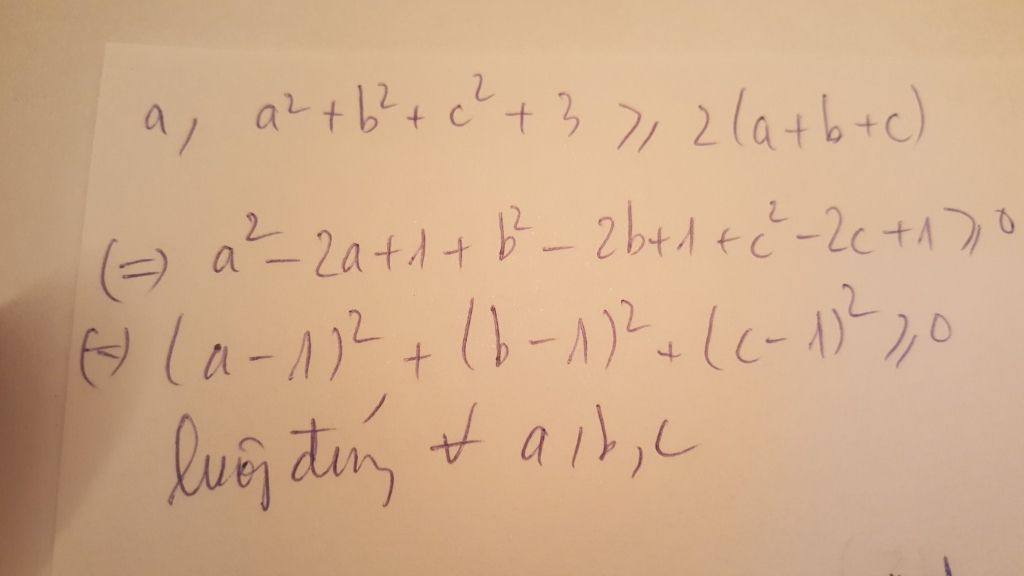 a, a² + b² + c² + 3 ≥ 2(a+b+c)
(=) a² - 2a + 1 + b² - 2b + 1 + c² - 2c + 1 ≥ 0
(=) (a - 1)² + (b - 1)² + (c - 1)² ≥ 0
luôn đúng ∀ a, b, c